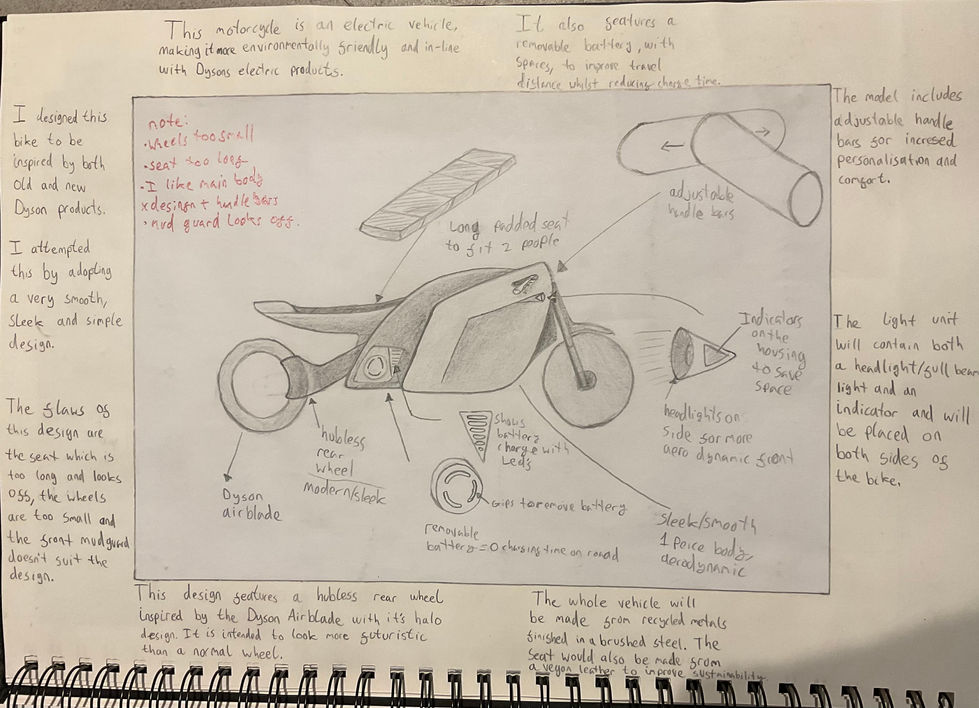 This motorcycle is an electric vehicle,
making it more environmentally friendly and in-line
with Dysons electric products.
It also features a
removable battery, with
spaces, to improve travel
distance whilst reducing charge time.
I designed this
bike to be
inspired by both
old and new
Dyson products.
I attempted
this by adopting
a very smooth,
sleek and simple
design.
The flaws of
this design are
the seat which is
too long and looks
off, the wheels
are too small and
the front mudguard
doesn't suit the
design.
note:
• wheels too small
• seat too long
• I like main body
x desingn + handle bars
• mud guard looks off.
Long padded seat
to fit 2 people
adjustable
handle bars
Indicators
on the
housing
to save
space
headlights on
side for more
aero dynamic front
Shows
battery
charge with
Leds
Gips to remove battery
removable
battery = 0 charging time on road
hubless
rear
wheel
modern/sleek
Dyson
airblade
Sleek/smooth
1 peice body,
aerodynamic
The model includes
adjustable handle
bars for incresed
personalisation and
comfort.
The light unit
will contain both
a headlight/full beam
light and an
indicator and will
be placed on
both sides of
the bike.
This design features a hubless rear wheel
inspired by the Dyson Airblade with it's halo
design. It is intended to look more futuristic
than a normal wheel.
The whole vehicle will
be made from recycled metals
finished in a brushed steel. The
seat would also be made from
a vegan leather to improve sustainability